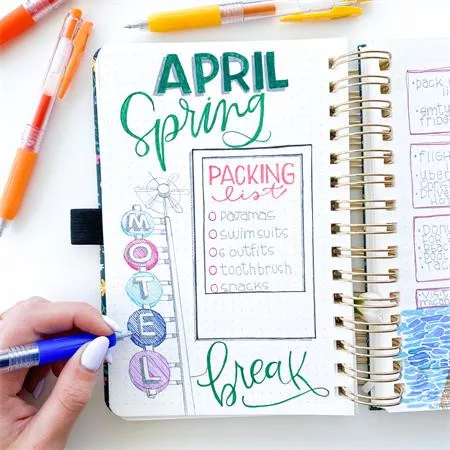 APRIL
Spring
PACKING
list
pajamas
swimsuits
6 outfits
toothbrush
snacks
MOTEL
break
pack
empty
fridge
flight
Uber
Drive